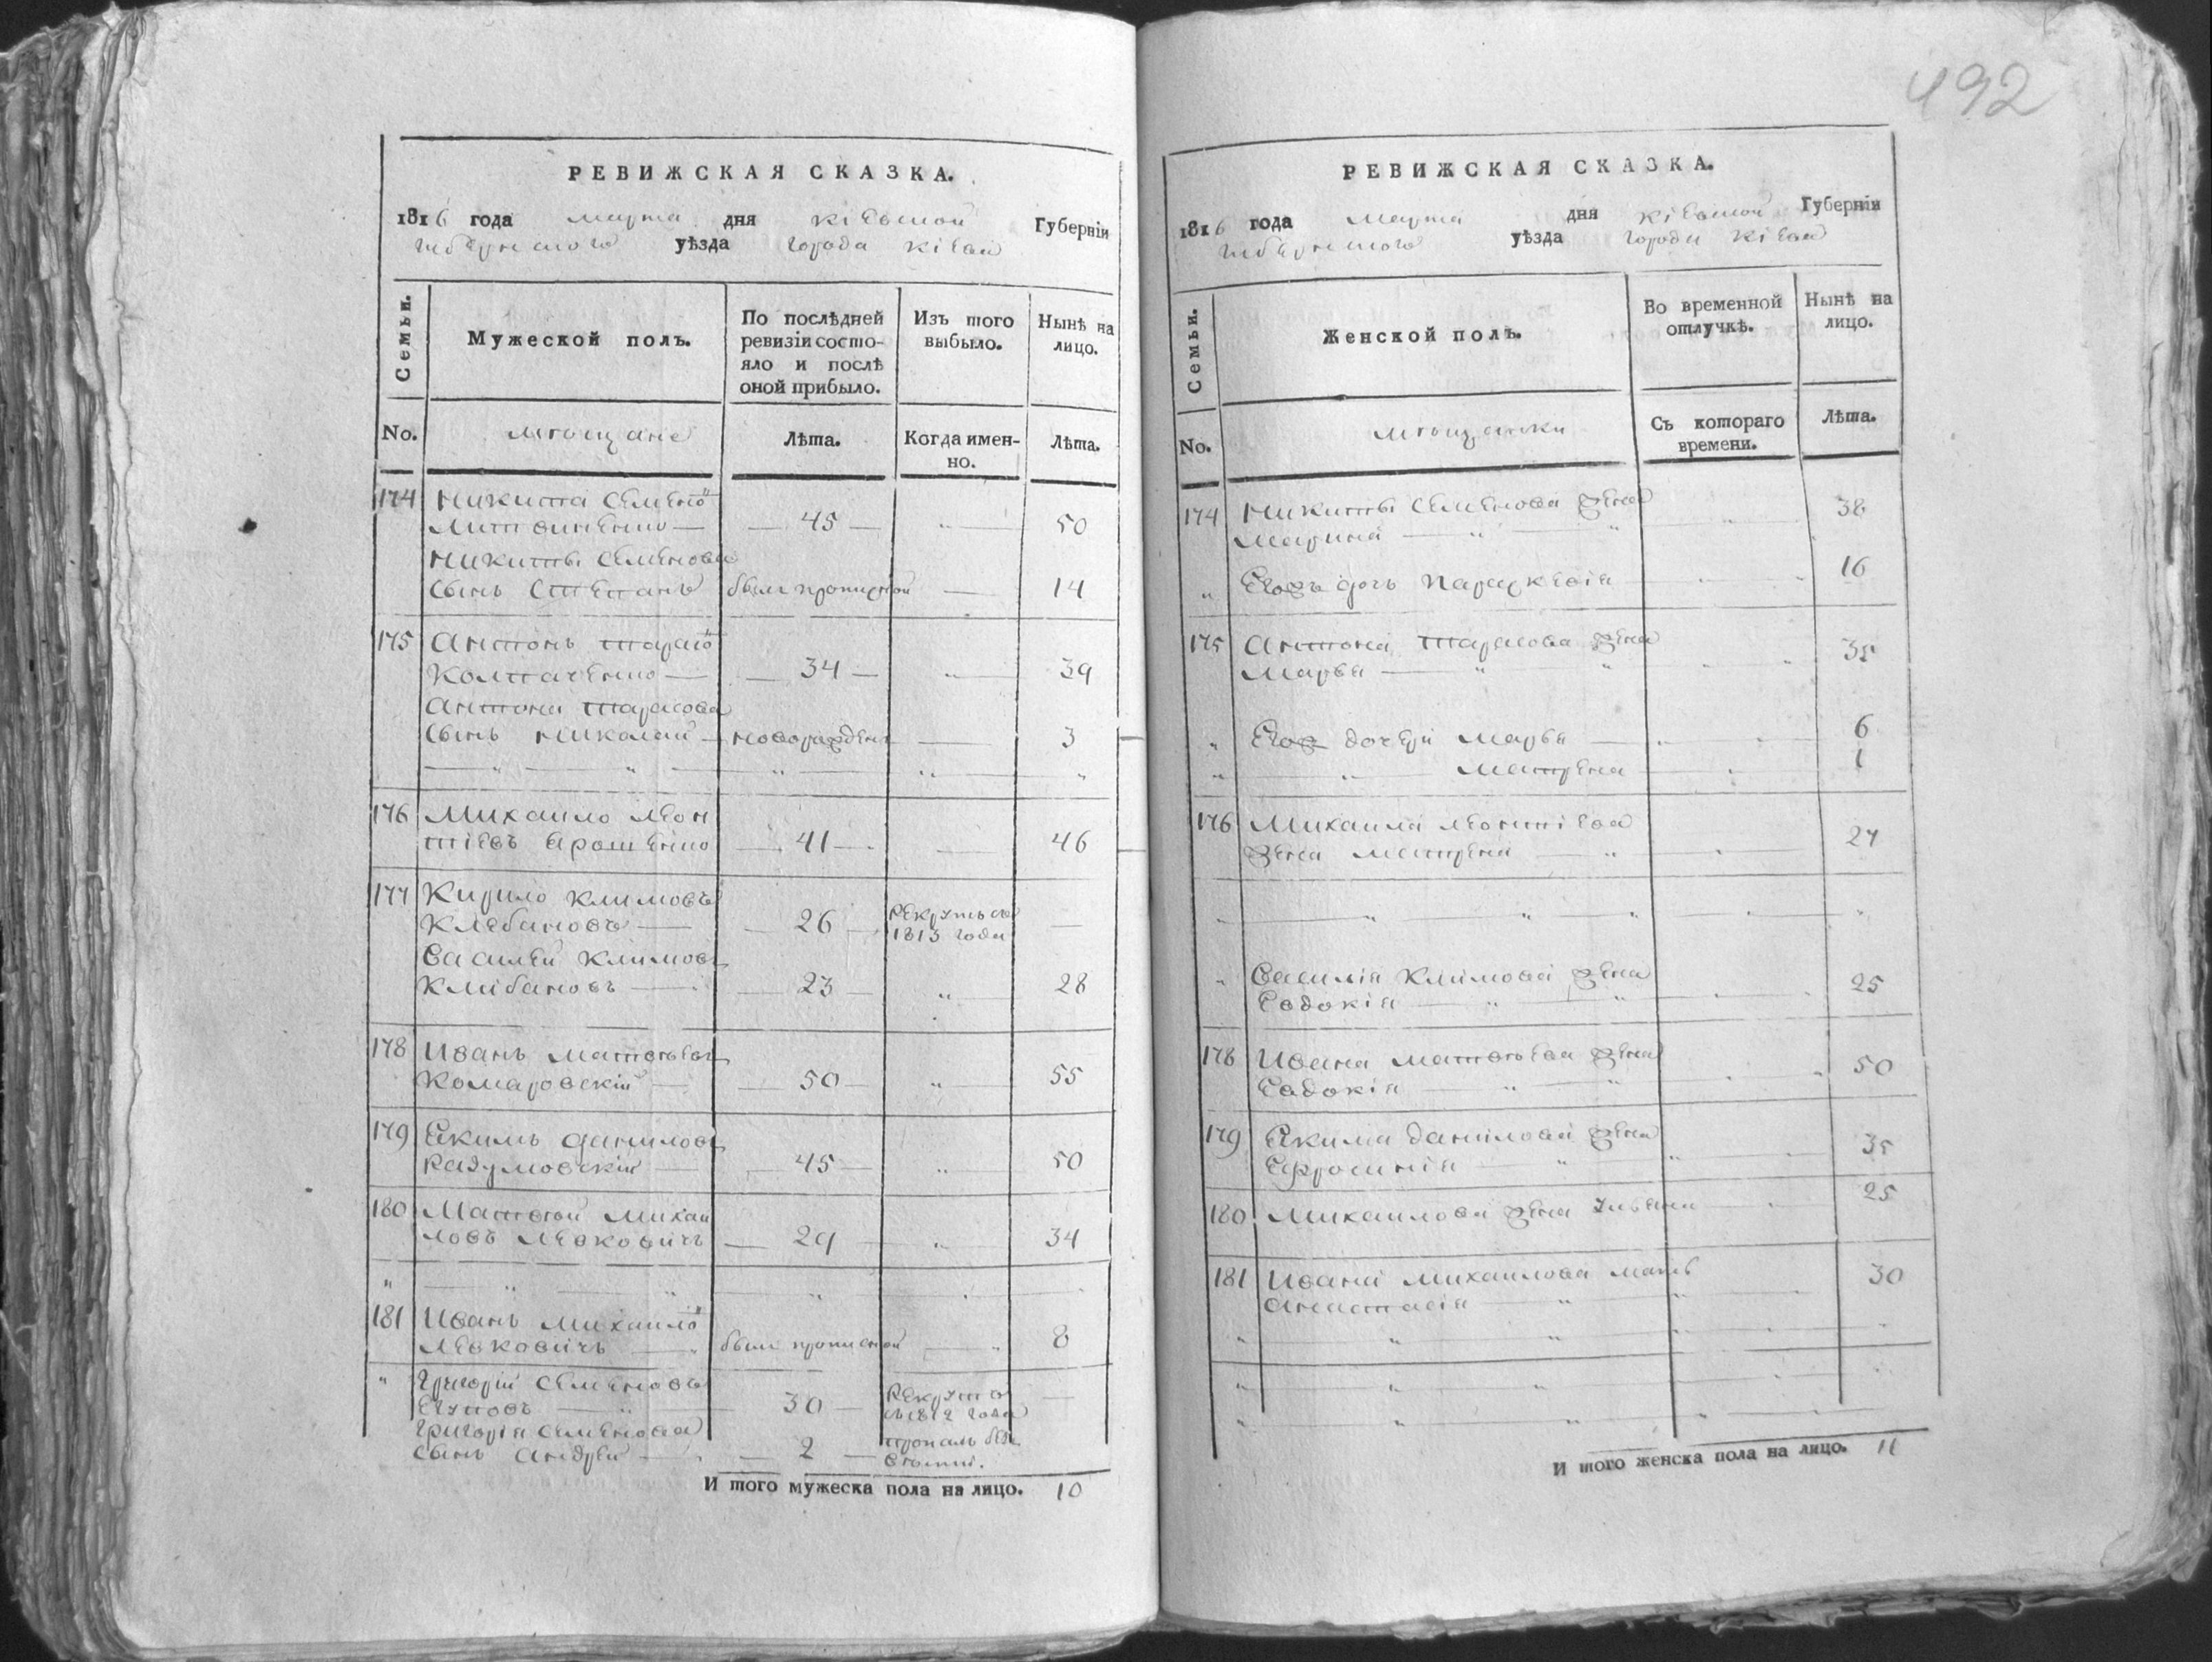 492
РЕВИЖСКАЯ СКАЗКА.
1816 года марта дня Кіевской Губерніи
уѣзда города Кіева
Семьи.
Мужеской полъ.
По послѣдней ревизіи состояло и послѣ оной прибыло.
Изъ того выбыло.
Нынѣ на лицо.
No.
мѣщане
Лѣта.
Когда именно.
Лѣта.
174 Никита Семено
Литвиненко — 45 — 50
Никиты Семенова
сынъ Степанъ былъ прописной — 14
175 Антонъ Тарасо
Колтаченко — 34 — 39
Антона Тарасова
сынъ Николай — новорожденъ — 3
176 Михаило Леон
тіевъ Ярошенко — 41 — 46
177 Кирило Климовъ
Клебановъ — 26 — Рекрутъ съ 1813 года —
Василей Климовъ
Клібановъ — 23 — 28
178 Иванъ Матвѣевъ
Комаровскій — 50 — 55
179 Екимъ Даниловъ
Радумовскій — 45 — 50
180 Матвѣй Михаи
ловъ Левковичъ — 29 — 34
181 Иванъ Михаило
Левковичъ — былъ прописной — 8
" Григорій Семеновъ
Егуповъ — 30 — Рекрутъ съ 1812 года —
Григорія Семенова
сынъ Андрей — 2 —
И того мужеска пола на лицо. 10
РЕВИЖСКАЯ СКАЗКА.
1816 года марта дня Кіевской Губерніи
уѣзда города Кіева
Семьи.
Женской полъ.
Во временной отлучкѣ.
Нынѣ на лицо.
No.
мѣщанки
Съ котораго времени.
Лѣта.
174 Никиты Семенова жена
Марина — 38
" Егожъ дочь Параскевія — 16
175 Антона Тарасова жена
Марья — 35
" Егож дочери Марья — 6
" — Матрена — 1
176 Михаила Леонтіева
жена Матрена — 27
" Василія Климова жена
Евдокія — 25
178 Ивана Матвѣева жена
Евдокія — 50
179 Якима Данілова жена
Ефросинія — 35
180 Михаилова жена Ульяна — 25
181 Ивана Михаилова мать
Анастасія — 30
И того женска пола на лицо. 11